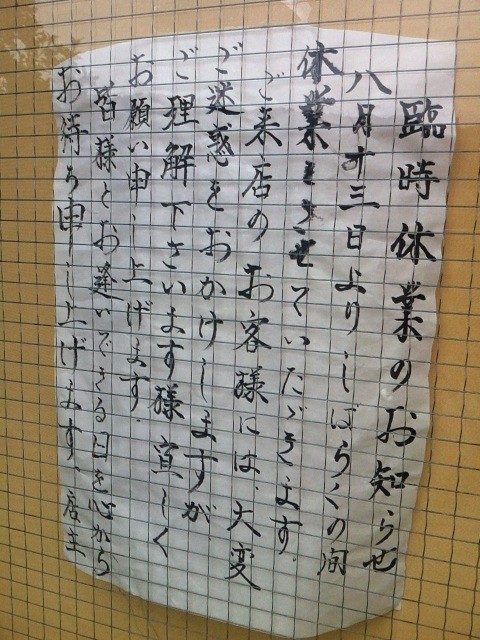 臨時休業のお知らせ
八月十三日よりしばらくの間
休業とさせていただきます。
ご来店のお客様には、大変
ご迷惑をおかけしますが
ご理解下さいます様宜しく
お願い申し上げます。
皆様とお逢いできる日を心から
お待ち申し上げます、店主